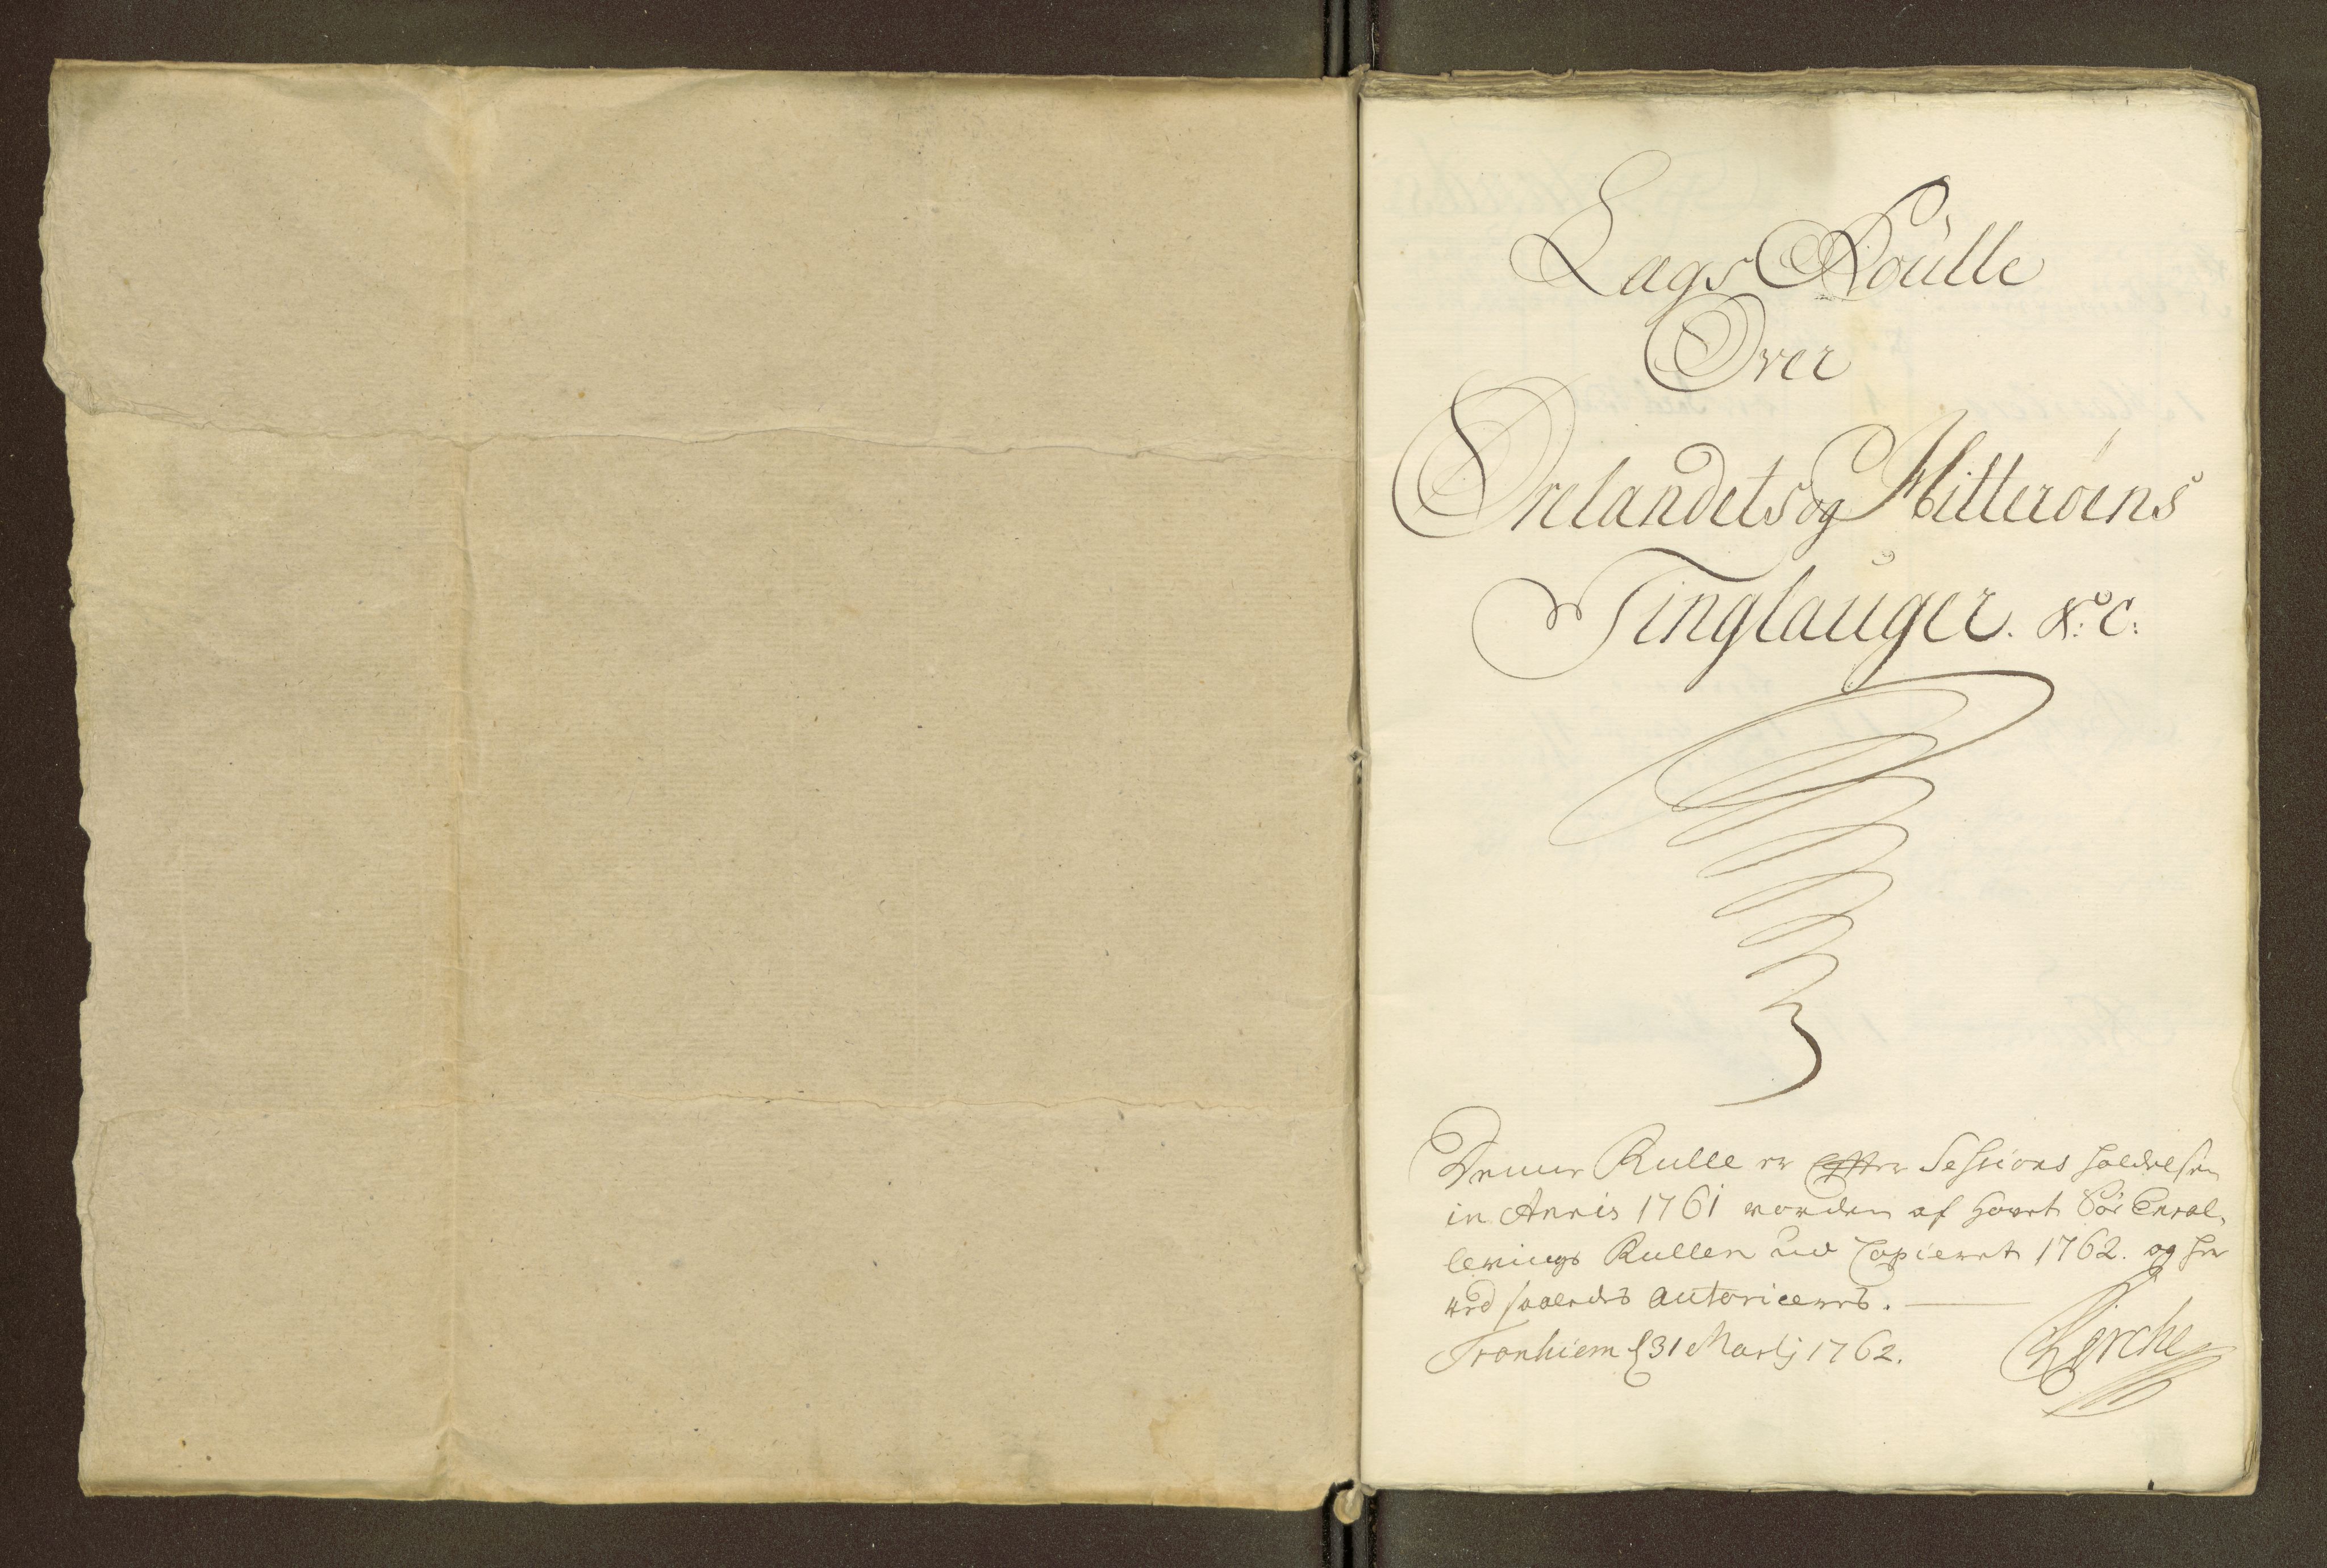 Lags Roülle
Over
Ørelandets og Hitterøens
Tinglauger. &c:
Denne Rulle er efter Sessions holdelsen
in Annis 1761 worden af Hovet Søe Enrol-
lerings Rullen ud Copieret 1762. og her
ved saaledes autoriceres.
Tronhiem d 31 Martij 1762.
Lerche